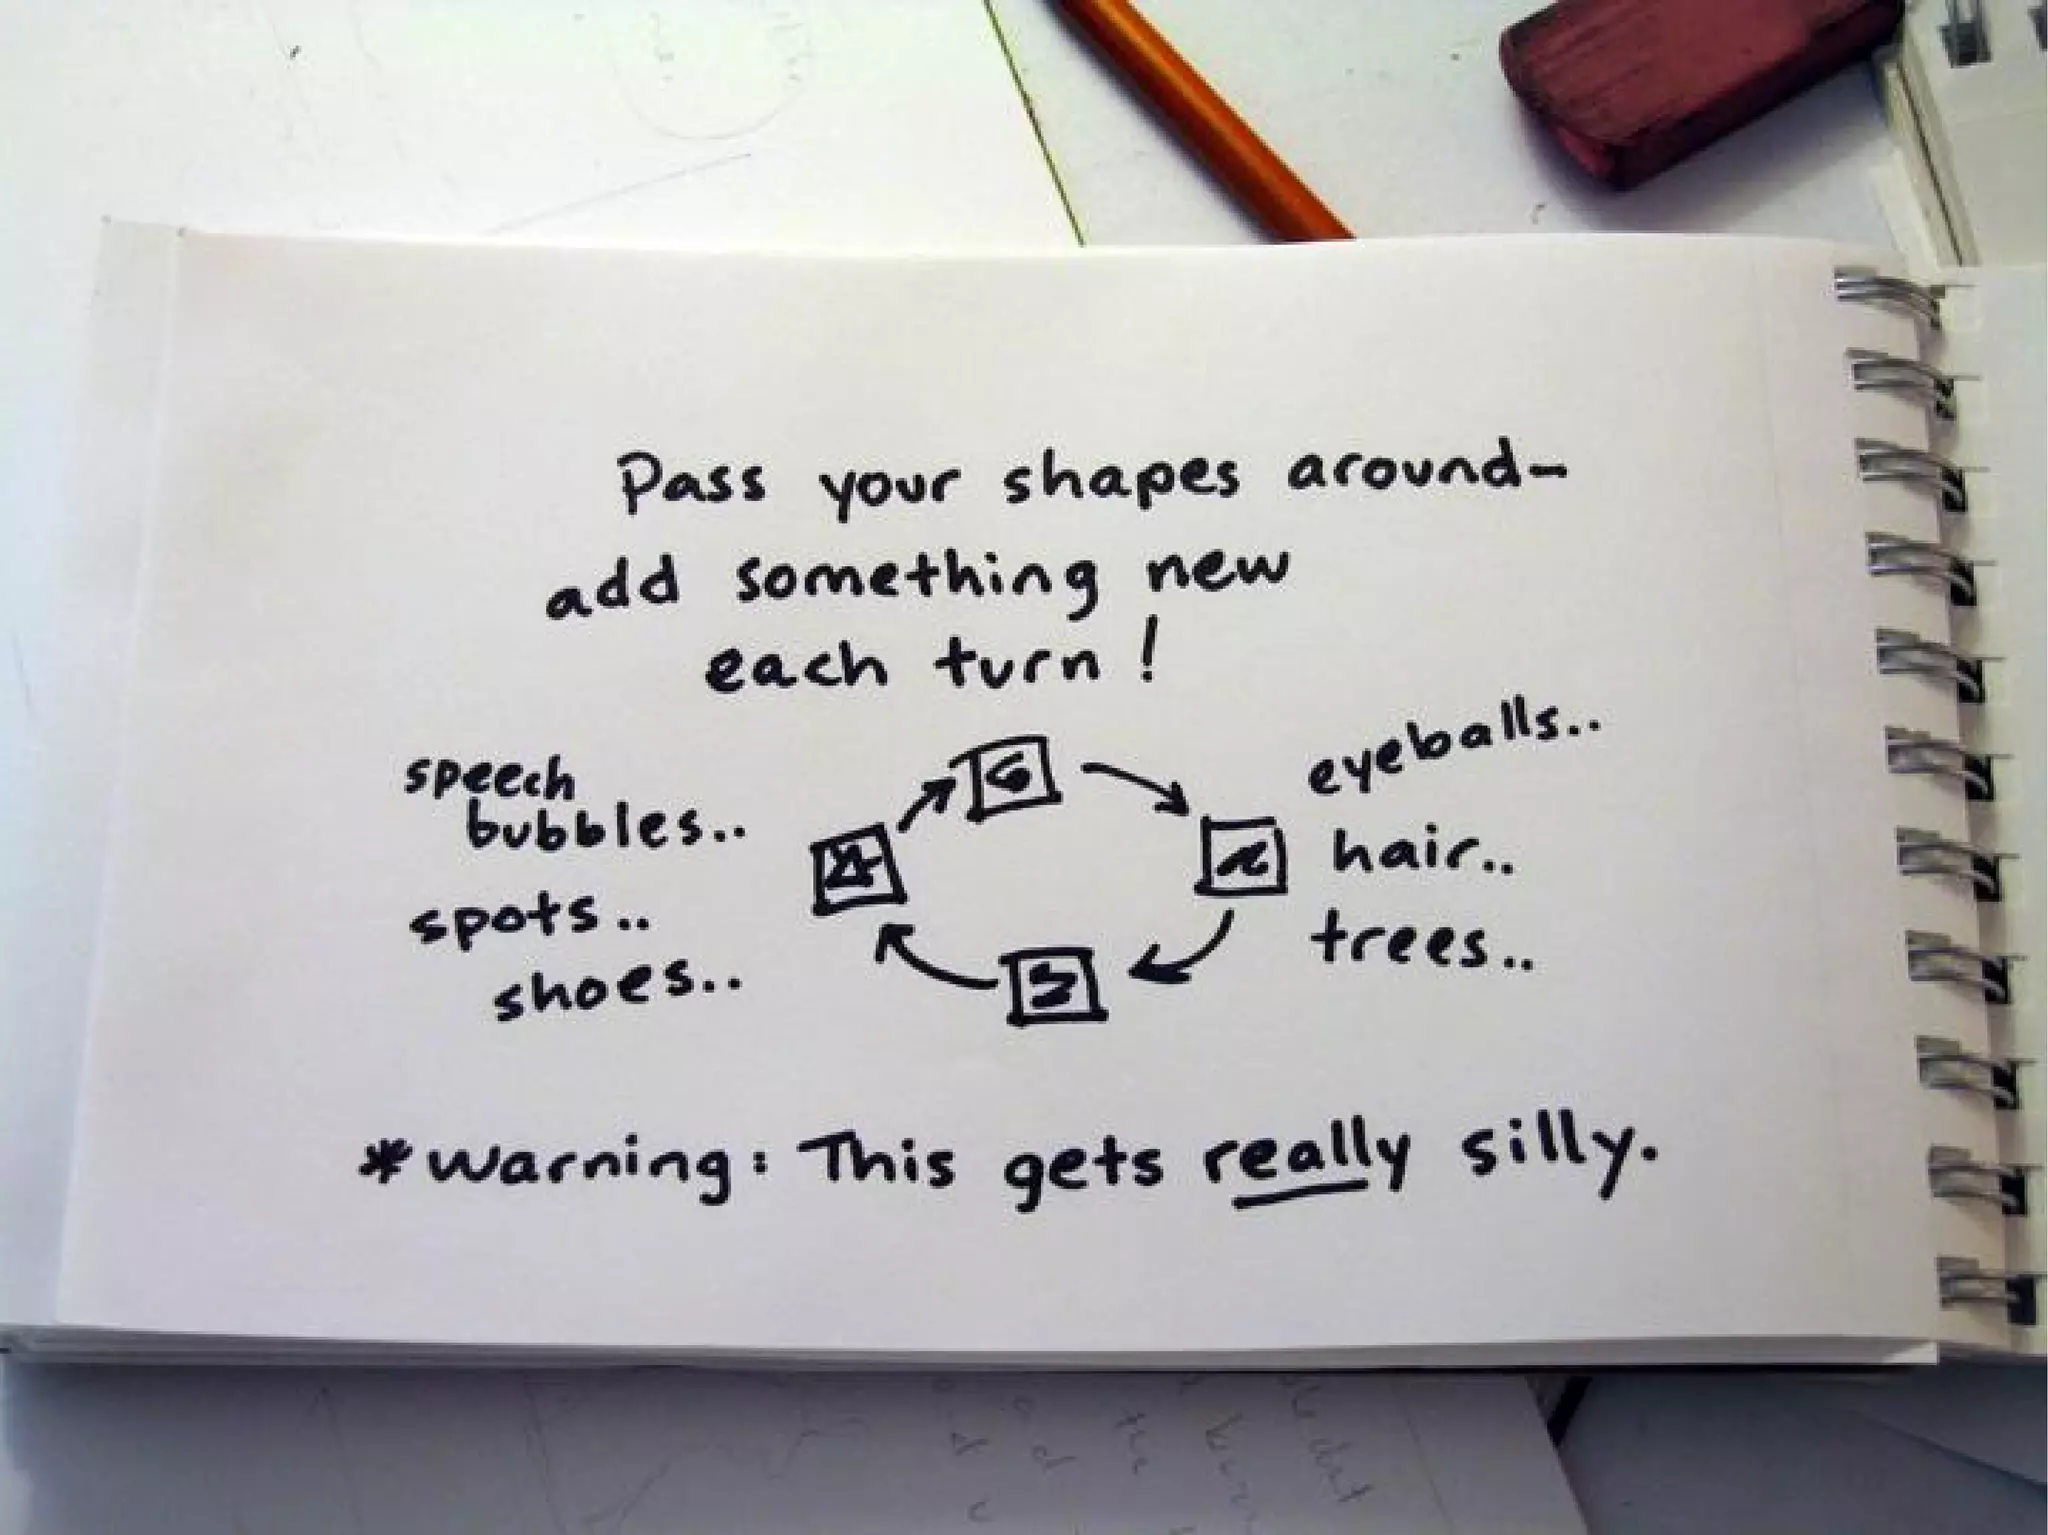 Pass your shapes around-
add something new
each turn!
speech
bubbles..
spots..
shoes..
eyeballs..
hair..
trees..
*warning: This gets really silly.